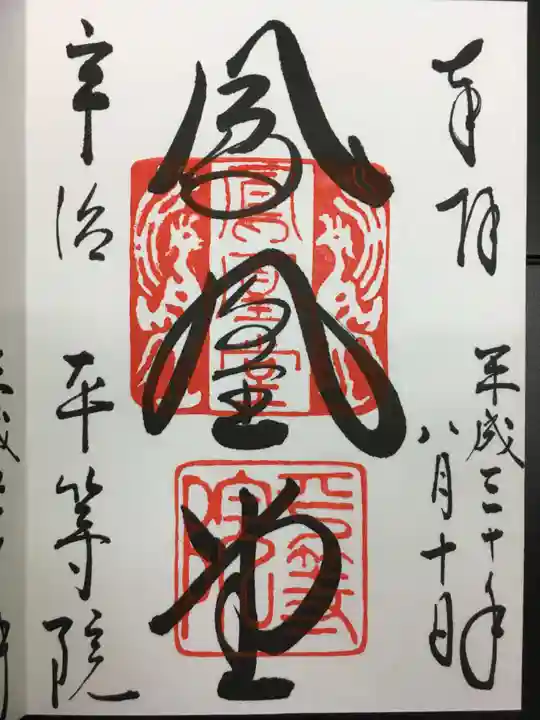 奉拝
平成三十年
八月十日
鳳凰堂
鳳凰堂
平等院
宇治
平等院